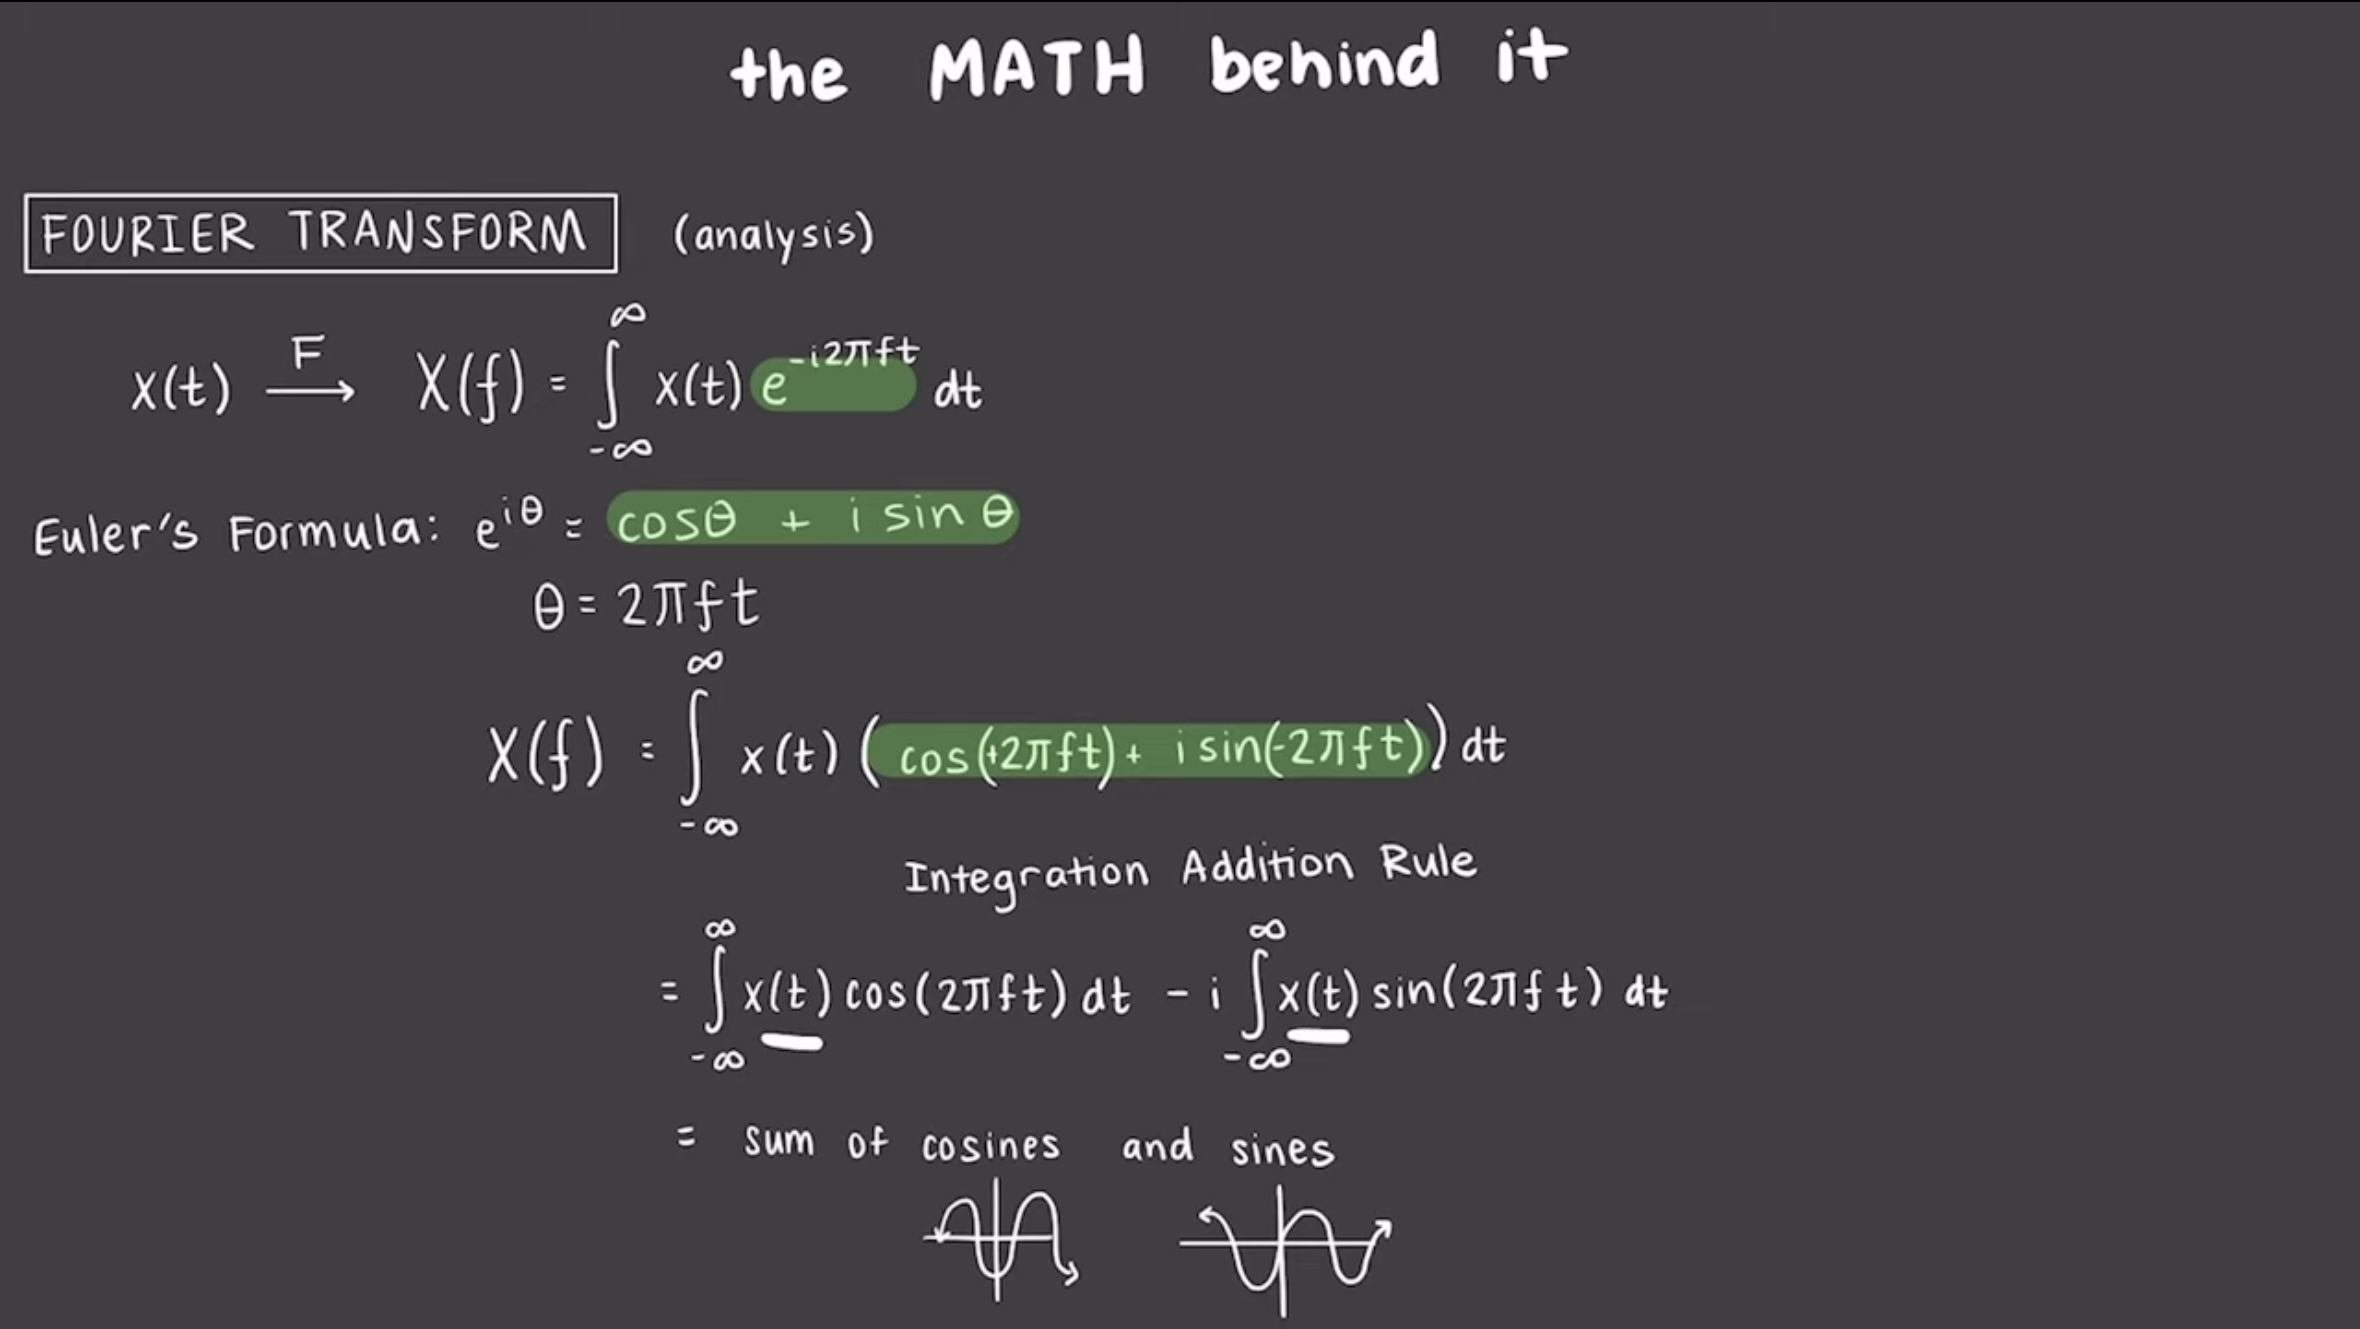 the MATH behind it
FOURIER TRANSFORM (analysis)
x(t) F→ X(f) = ∫_{-∞}^{∞} x(t) e^{-i2πft} dt
Euler's Formula: e^{iθ} = cosθ + i sin θ
θ = 2πft
X(f) = ∫_{-∞}^{∞} x(t) (cos(+2πft) + i sin(-2πft)) dt
Integration Addition Rule
= ∫_{-∞}^{∞} x(t) cos(2πft) dt - i ∫_{-∞}^{∞} x(t) sin(2πft) dt
= sum of cosines and sines